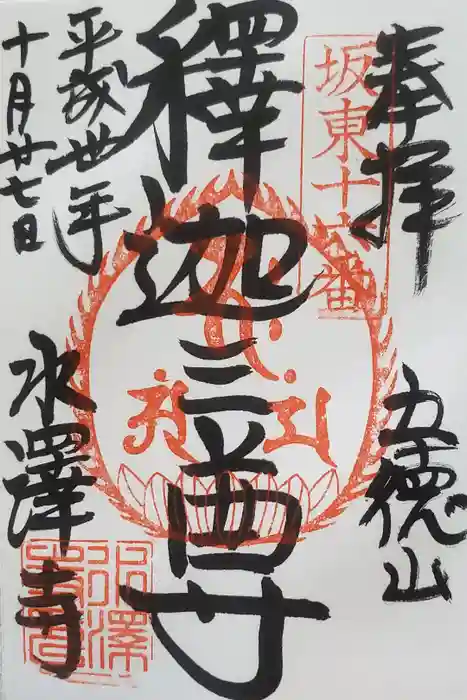 奉拝
坂東十六番
五徳山
釋迦三尊
平成丗年
十月廿七日
水澤寺